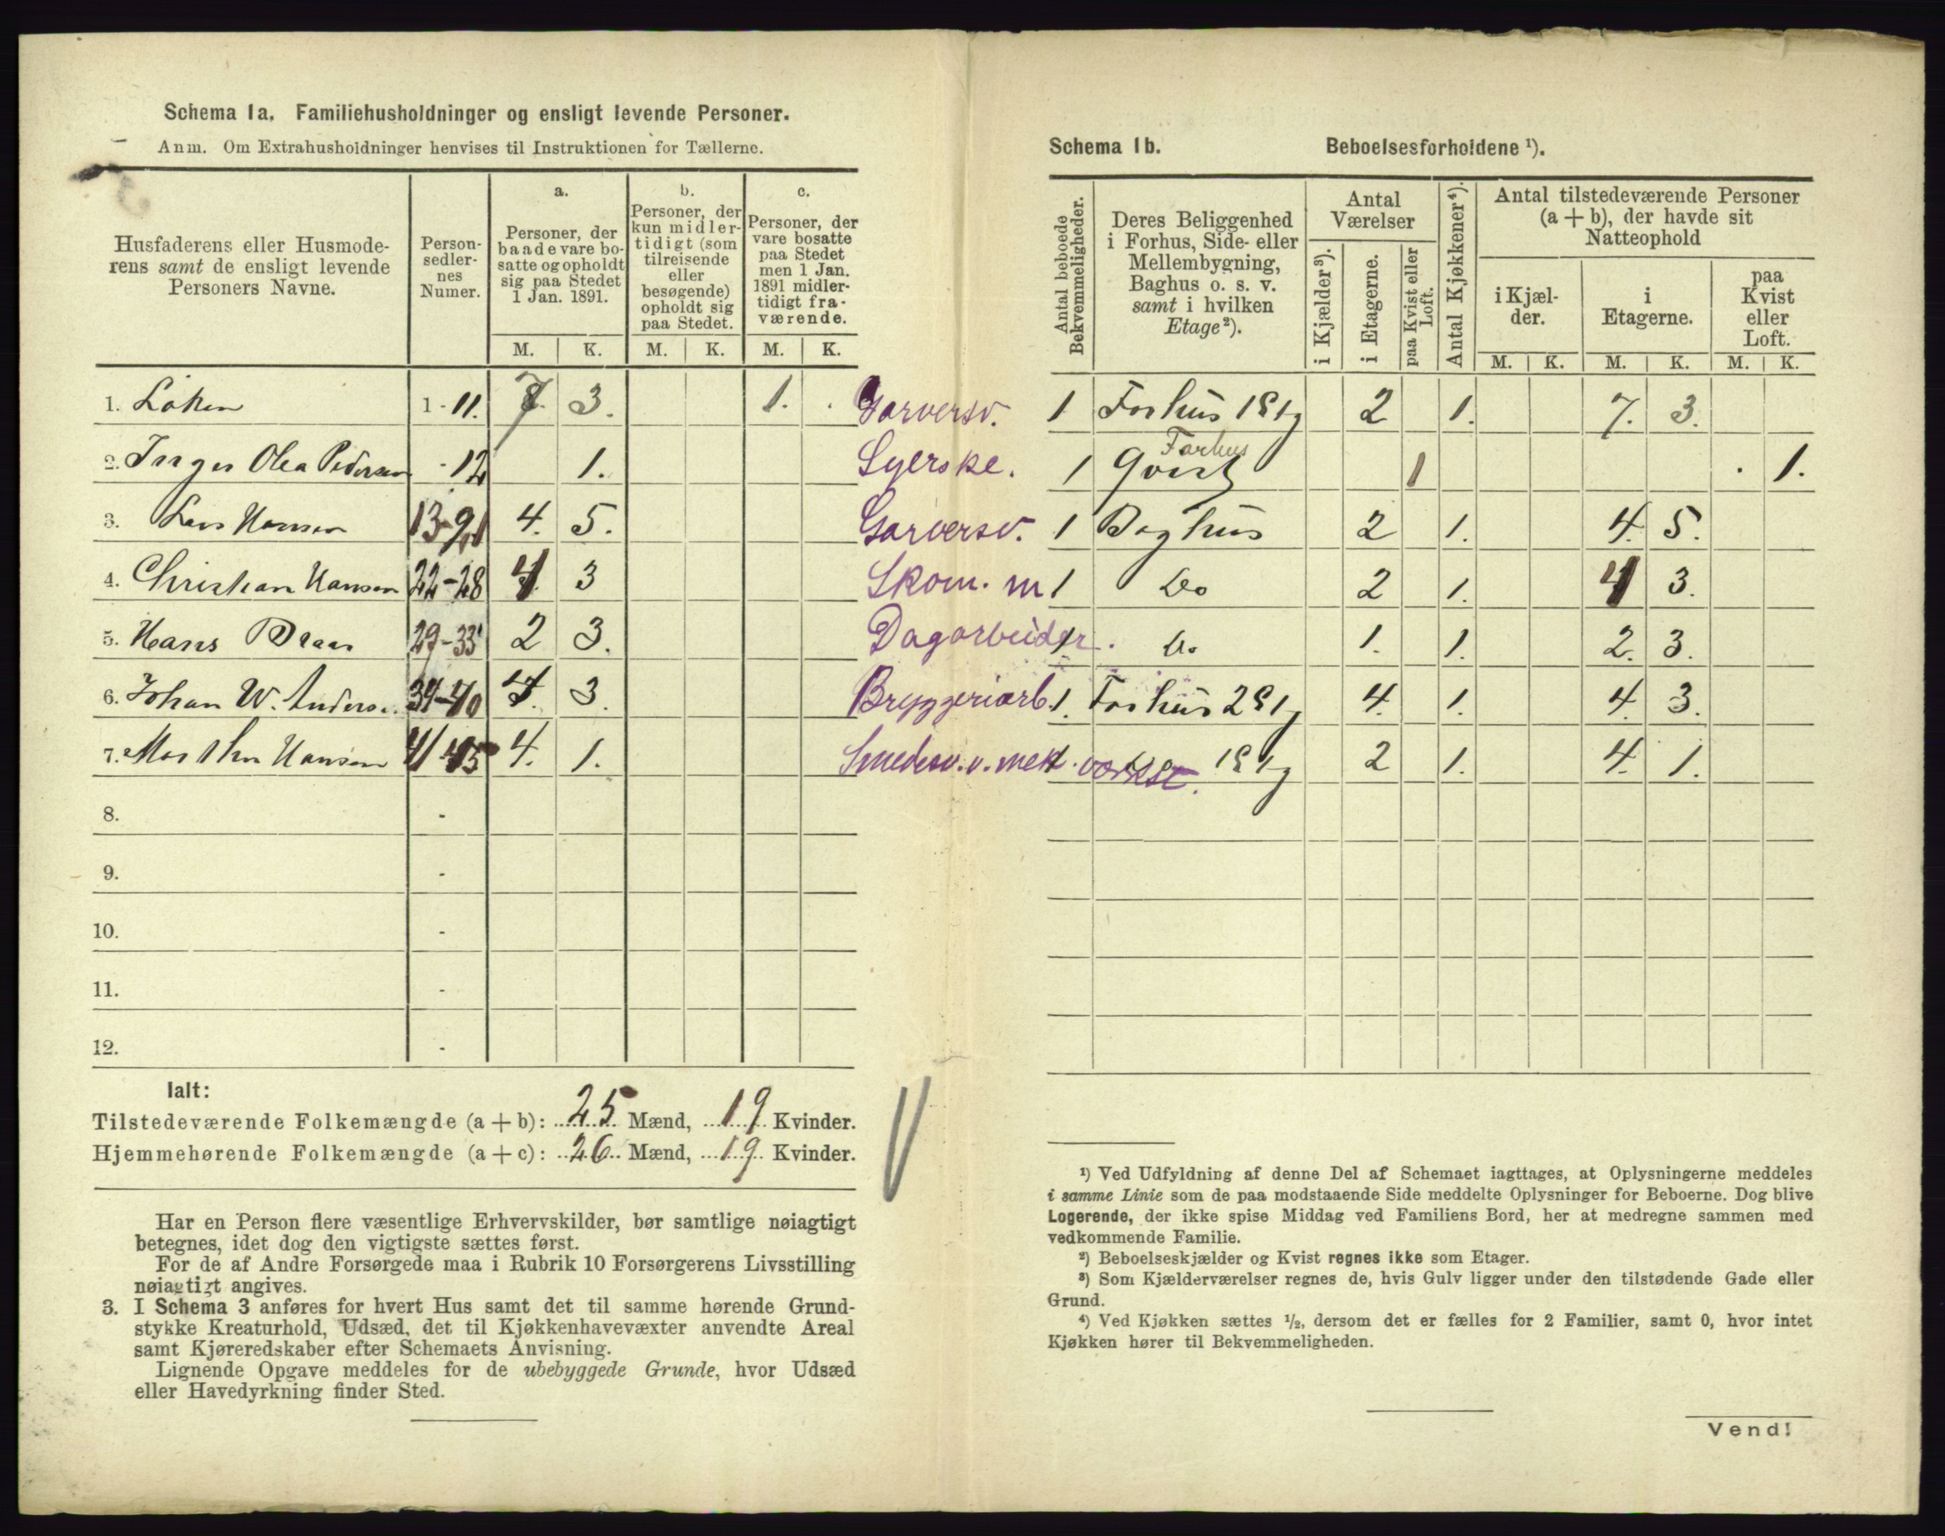 Schema 1a. Familiehusholdninger og ensligt levende Personer.
Anm. Om Extrahusholdninger henvises til Instruktionen for Tællerne.
Husfaderens eller Husmode-
rens samt de ensligt levende
Personers Navne.
Person-
sedler-
nes
Numer.
a.
Personer, der
baade vare bo-
satte og opholdt
sig paa Stedet
1 Jan. 1891.
b.
Personer, der
kun midler-
tidigt (som
tilreisende
eller
besøgende)
opholdt sig
paa Stedet.
c.
Personer, der
vare bosatte
paa Stedet
men 1 Jan.
1891 midler-
tidigt fra-
værende.
M. K. M. K. M. K.
1. Løken 1 - 11. 7. 3. 1. .
2. Inger Olea Pedersen - 12 1.
3. Lars Hansen 13-21 4. 5.
4. Christian Hansen 22-28 4 3
5. Hans Braa 29-33 2 3.
6. Johan W. Anders. 34-40 4. 3.
7. Marthn Hansen 41-45 4. 1.
8. -
9. -
10. -
11. -
12. -
Ialt:
Tilstedeværende Folkemængde (a + b): 25 Mænd, 19 Kvinder.
Hjemmehørende Folkemængde (a + c): 26 Mænd, 19 Kvinder.
Har en Person flere væsentlige Erhvervskilder, bør samtlige nøiagtigt
betegnes, idet dog den vigtigste sættes først.
For de af Andre Forsørgede maa i Rubrik 10 Forsørgerens Livsstilling
nøiagtigt angives.
3. I Schema 3 anføres for hvert Hus samt det til samme hørende Grund-
stykke Kreaturhold, Udsæd, det til Kjøkkenhavevæxter anvendte Areal
samt Kjøreredskaber efter Schemaets Anvisning.
Lignende Opgave meddeles for de ubebyggede Grunde, hvor Udsæd
eller Havedyrkning finder Sted.
Schema 1b. Beboelsesforholdene ¹).
Antal beboede
Bekvemmeligheder.
Deres Beliggenhed
i Forhus, Side- eller
Mellembygning,
Baghus o. s. v.
samt i hvilken
Etage²).
Antal
Værelser
i Kjælder³).
i Etagerne.
paa Kvist eller
Loft.
Antal Kjøkkener⁴).
Antal tilstedeværende Personer
(a + b), der havde sit
Natteophold
i Kjæl-
der.
i
Etagerne.
paa
Kvist
eller
Loft.
M. K. M. K. M. K.
Garversv. 1 Forhus 1 Etg 2 1. 7. 3.
Forhus
Syerske. 1 Qvist 1 . 1.
Garversv. 1 Baghus 2 1. 4. 5.
Skom. m 1 Do 2 1. 4 3.
Dagarbeider. 1 Do 1. 1. 2. 3.
Bryggeriarb. 1. Forhus 2 Etg 4. 1. 4. 3.
Smedesv. v. mek. værkst. 1 Etg 2 1. 4. 1.
¹) Ved Udfyldning af denne Del af Schemaet iagttages, at Oplysningerne meddeles
i samme Linie som de paa modstaaende Side meddelte Oplysninger for Beboerne. Dog blive
Logerende, der ikke spise Middag ved Familiens Bord, her at medregne sammen med
vedkommende Familie.
²) Beboelseskjælder og Kvist regnes ikke som Etager.
³) Som Kjælderværelser regnes de, hvis Gulv ligger under den tilstødende Gade eller
Grund.
⁴) Ved Kjøkken sættes ½, dersom det er fælles for 2 Familier, samt 0, hvor intet
Kjøkken hører til Bekvemmeligheden.
Vend!